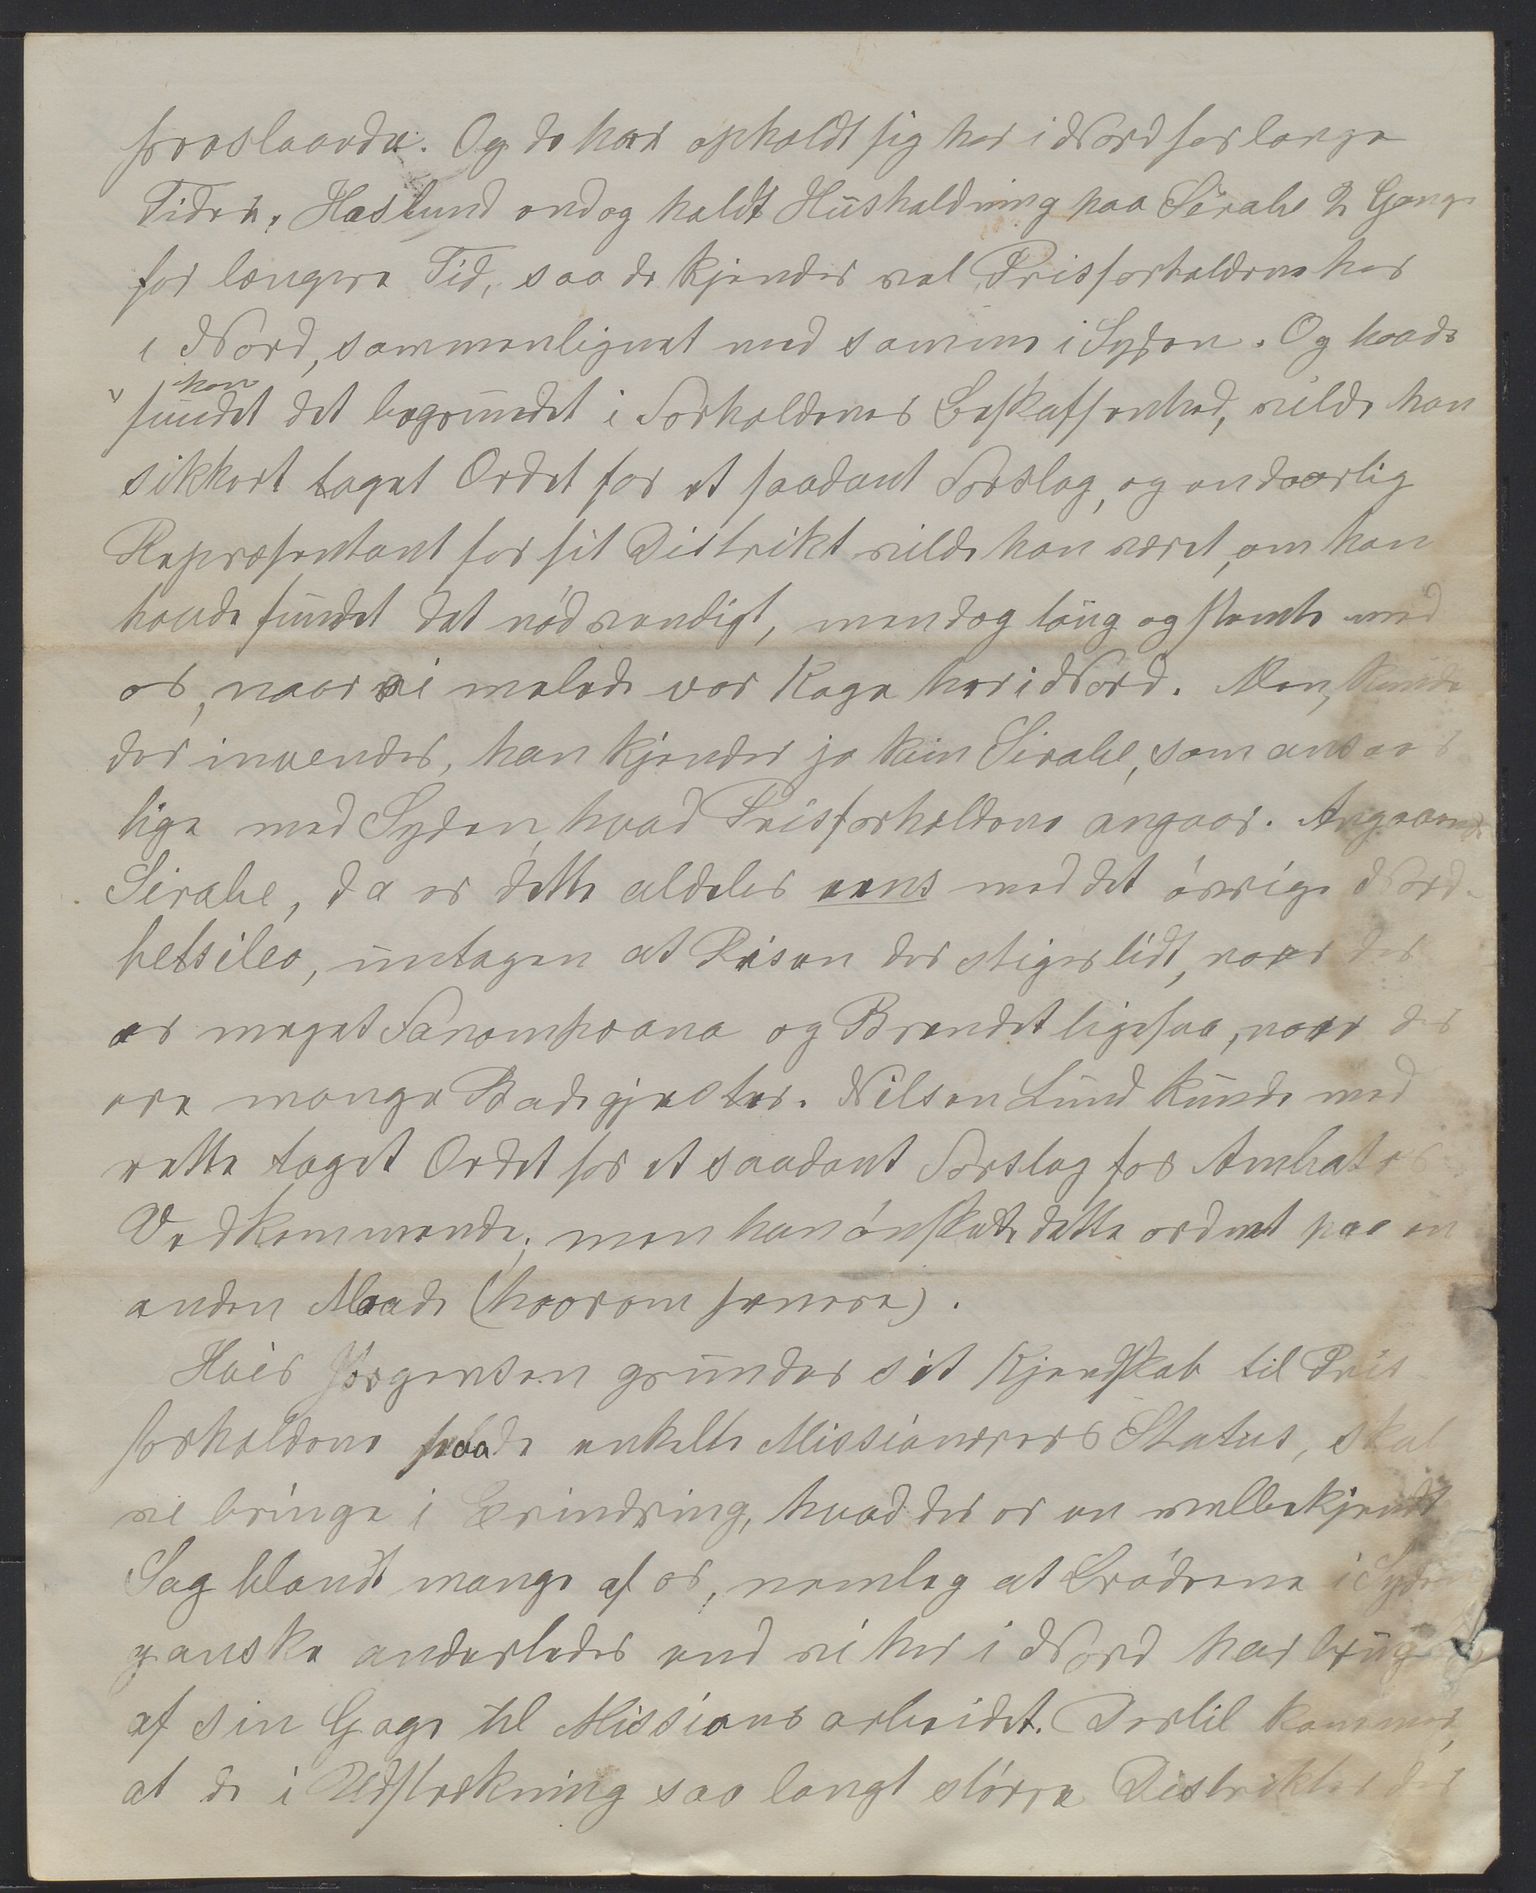 foreslaaede. Og de har opholdt sig her i Nord for lange
Tider, Haslund endog holdt Husholdning paa Sirabe 2 Gange
for længere Tid, saa de kjender vel Prisforholdene her
i Nord, sammenlignet med samme i Syden. Og havde
han
fundet det begrundet i Forholdenes Beskaffenhed, vilde han
sikkert taget Ordet for et saadant Forslag, og en dærlig
Repræsentant for sit Distrikt vilde han været, om han
havde fundet det nødvendigt, men dog taug og stemte med
os, naar vi melede vor Kage her i Nord. Men, kunde
der invendes, han kjender jo kun Sirabe, som ansees
lige med Syden, hvad Prisforholdene angaar. Angaaende
Sirabe, da er dette aldeles eens med det øvrige Nord-
betsileo, untagen at Risen der stiger lidt, naar der
er meget Fanompoana og Brendet ligesaa, naar der
ere mange Badegjæster. Nilsen Lund kunde med
rette taget Ordet for et saadant Forslag for Ambatos
Vedkommende; men han ønskede dette ordnet paa en
anden Maade (hvorom senere).
Hvis Jørgensen grunder sit Kjendskab til Pris-
forholdene paa de enkelte Missionærers Status, skal
vi bringe i Erindring, hvad der er en velbekjendt
Sag blandt mange af os, nemlig at Brødrene i Syden
ganske anderledes end vi her i Nord har brugt
af sin Gage til Missionsarbeidet. Dertil kommer,
at de i Udstrækning saa langt større Distrikter der